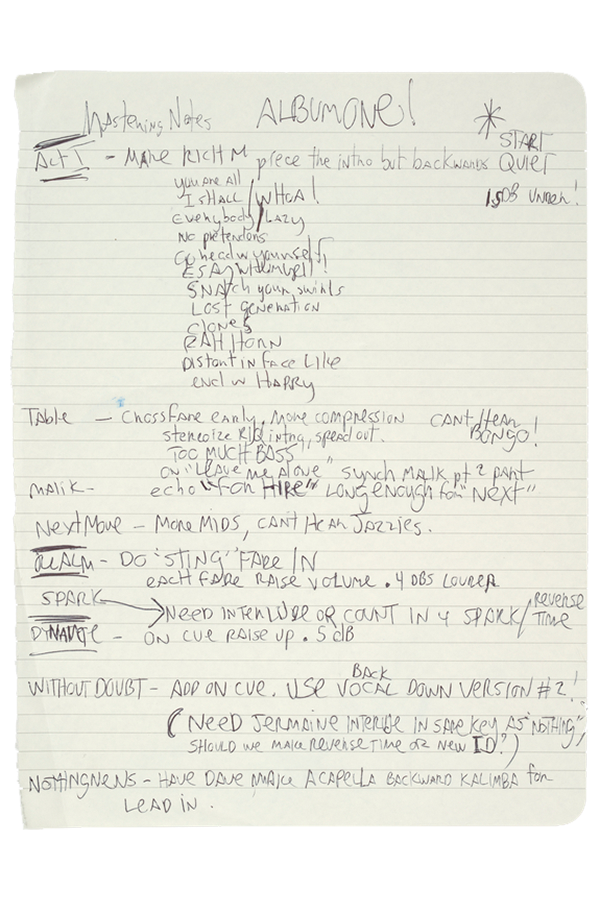 Mastering Notes ALBUM ONE!
* START
Act 1 - MAKE RICH M piece the intro but backwards QUIET
you are all 1.5DB UNDER!
I SHALL / WHOA!
Everybody / LAZY
No pretendons
Go head w yourself!
ESAYWHUMUFF!
SNATCH your swirls
LOST generation
CLONES
RAH HORN
DISTANT in face LIKE
end w HARRY
TABLE - CROSSFADE early, MORE compression CANT HEAR
stereoize intro, spread out. BONGO!
TOO MUCH BASS
ON "LEAVE me Alone" synch MALIK pt 2 part
MALIK - echo "FOR HIRE" LONG enough for "NEXT"
NEXT MOVE - MORE MIDS, CANT HEAR JAZZIES.
REALM - DO "STING" FADE IN
EACH FADE RAISE VOLUME .4 DBS LOUDER
SPARK → NEED INTERLUDE OR COUNT IN 4 SPARK / REVERSE TIME
DYNAMITE - ON CUE RAISE UP .5 dB
BACK
WITHOUT DOUBT - ADD ON CUE. USE VOCAL DOWN VERSION #2!
(NEED JERMAINE INTERLUDE IN SAME KEY AS "NOTHING",
SHOULD WE MAKE REVERSE TIME OR NEW ID?)
NOTHINGNENS - HAVE DAVE MAKE ACAPELLA BACKWARD KALIMBA for
LEAD IN.